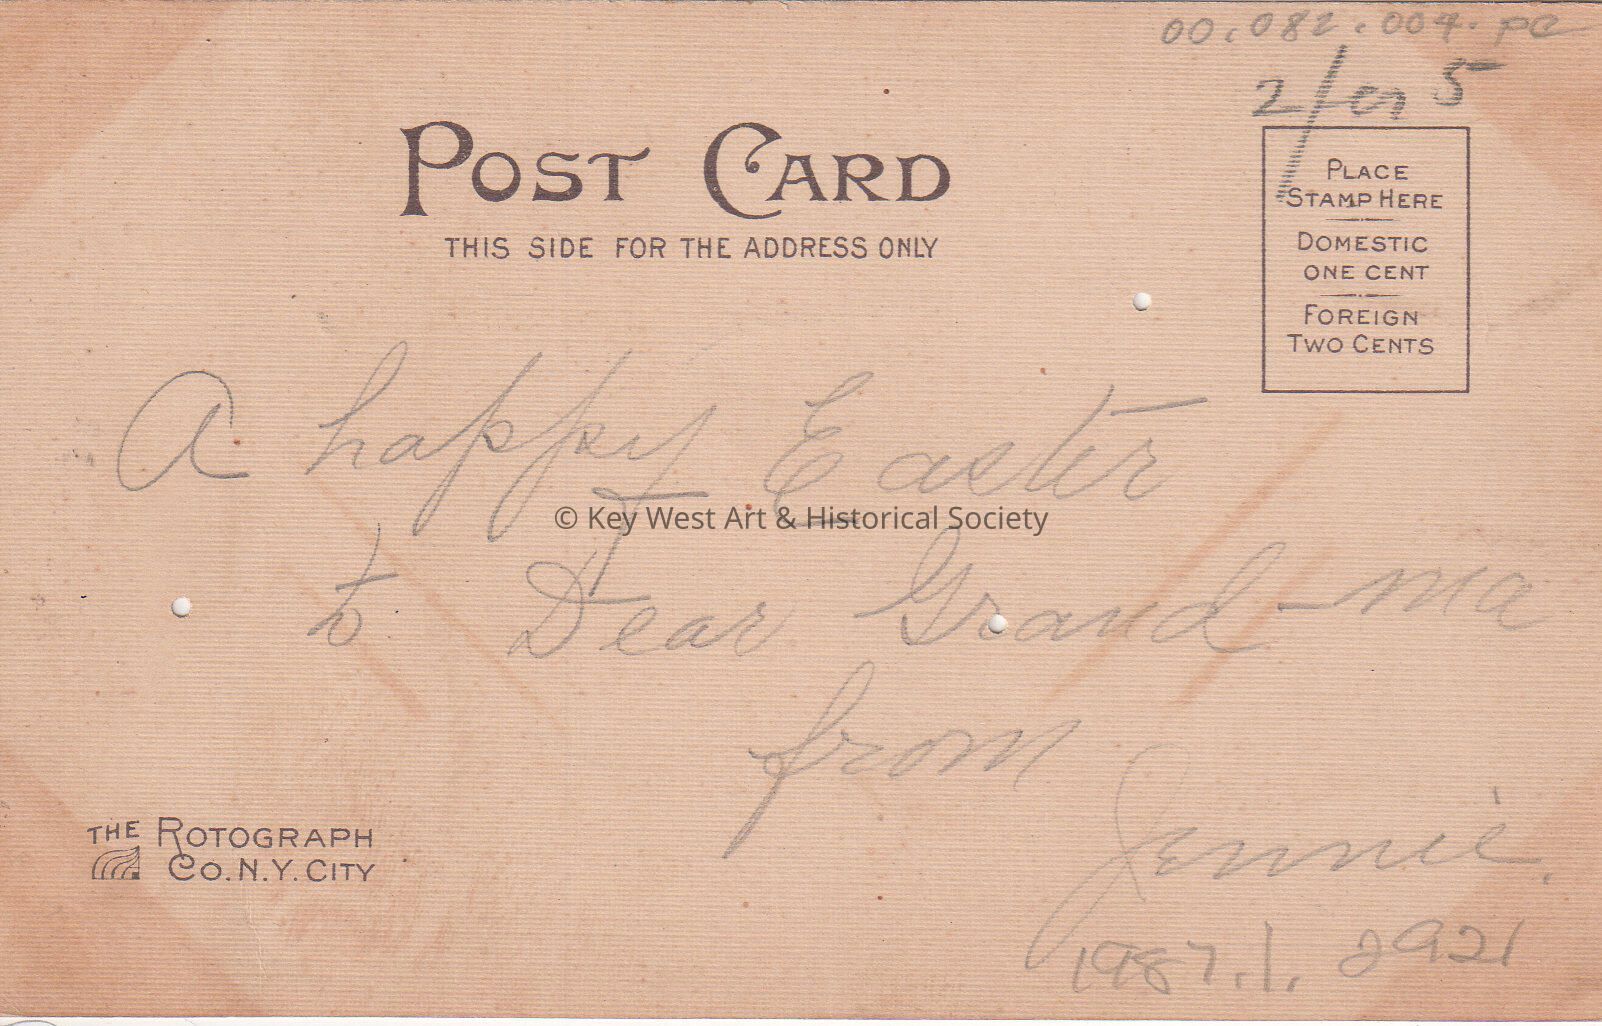 00.082.004.pc
2/for 5
POST CARD
THIS SIDE FOR THE ADDRESS ONLY
PLACE
STAMP HERE
DOMESTIC
ONE CENT
FOREIGN
TWO CENTS
A happy Easter
© Key West Art & Historical Society
to Dear Grand-ma
from
Jennie.
THE ROTOGRAPH
CO. N.Y. CITY
1987.1.2921